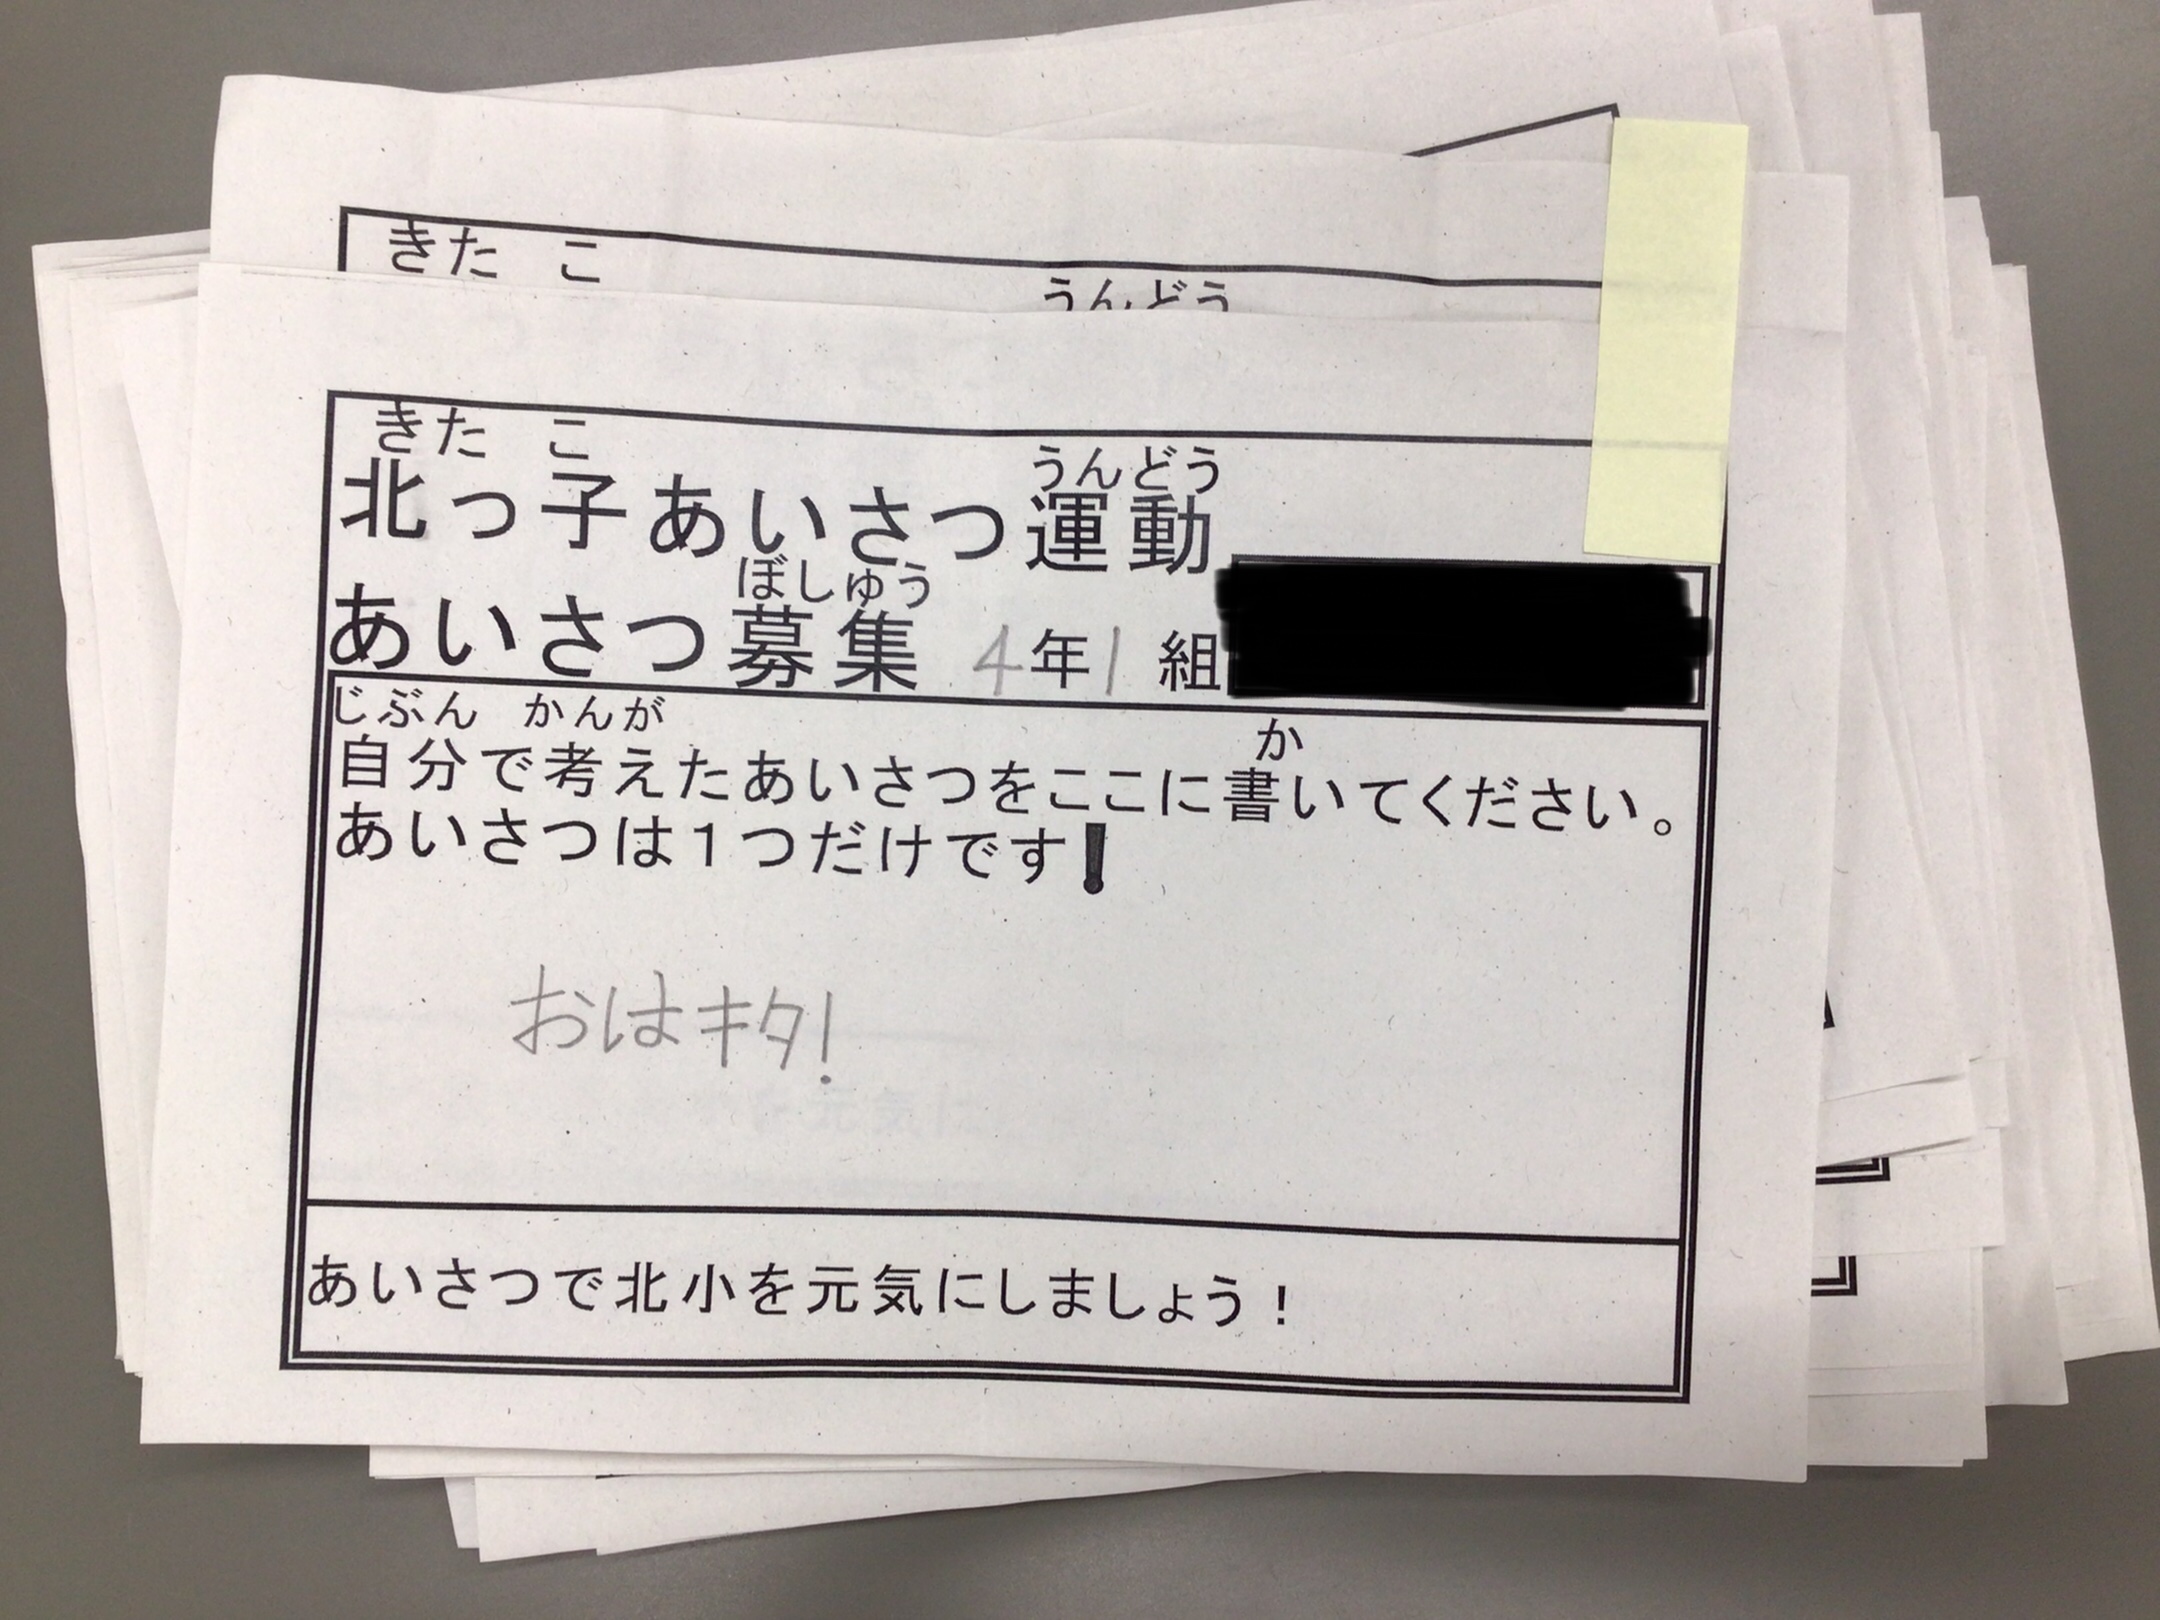 きた こ
うんどう
きた こ うんどう
北っ子あいさつ運動
ぼしゅう
あいさつ募集 4年1組
じぶん かんが か
自分で考えたあいさつをここに書いてください。
あいさつは1つだけです!
おはキタ!
あいさつで北小を元気にしましょう!